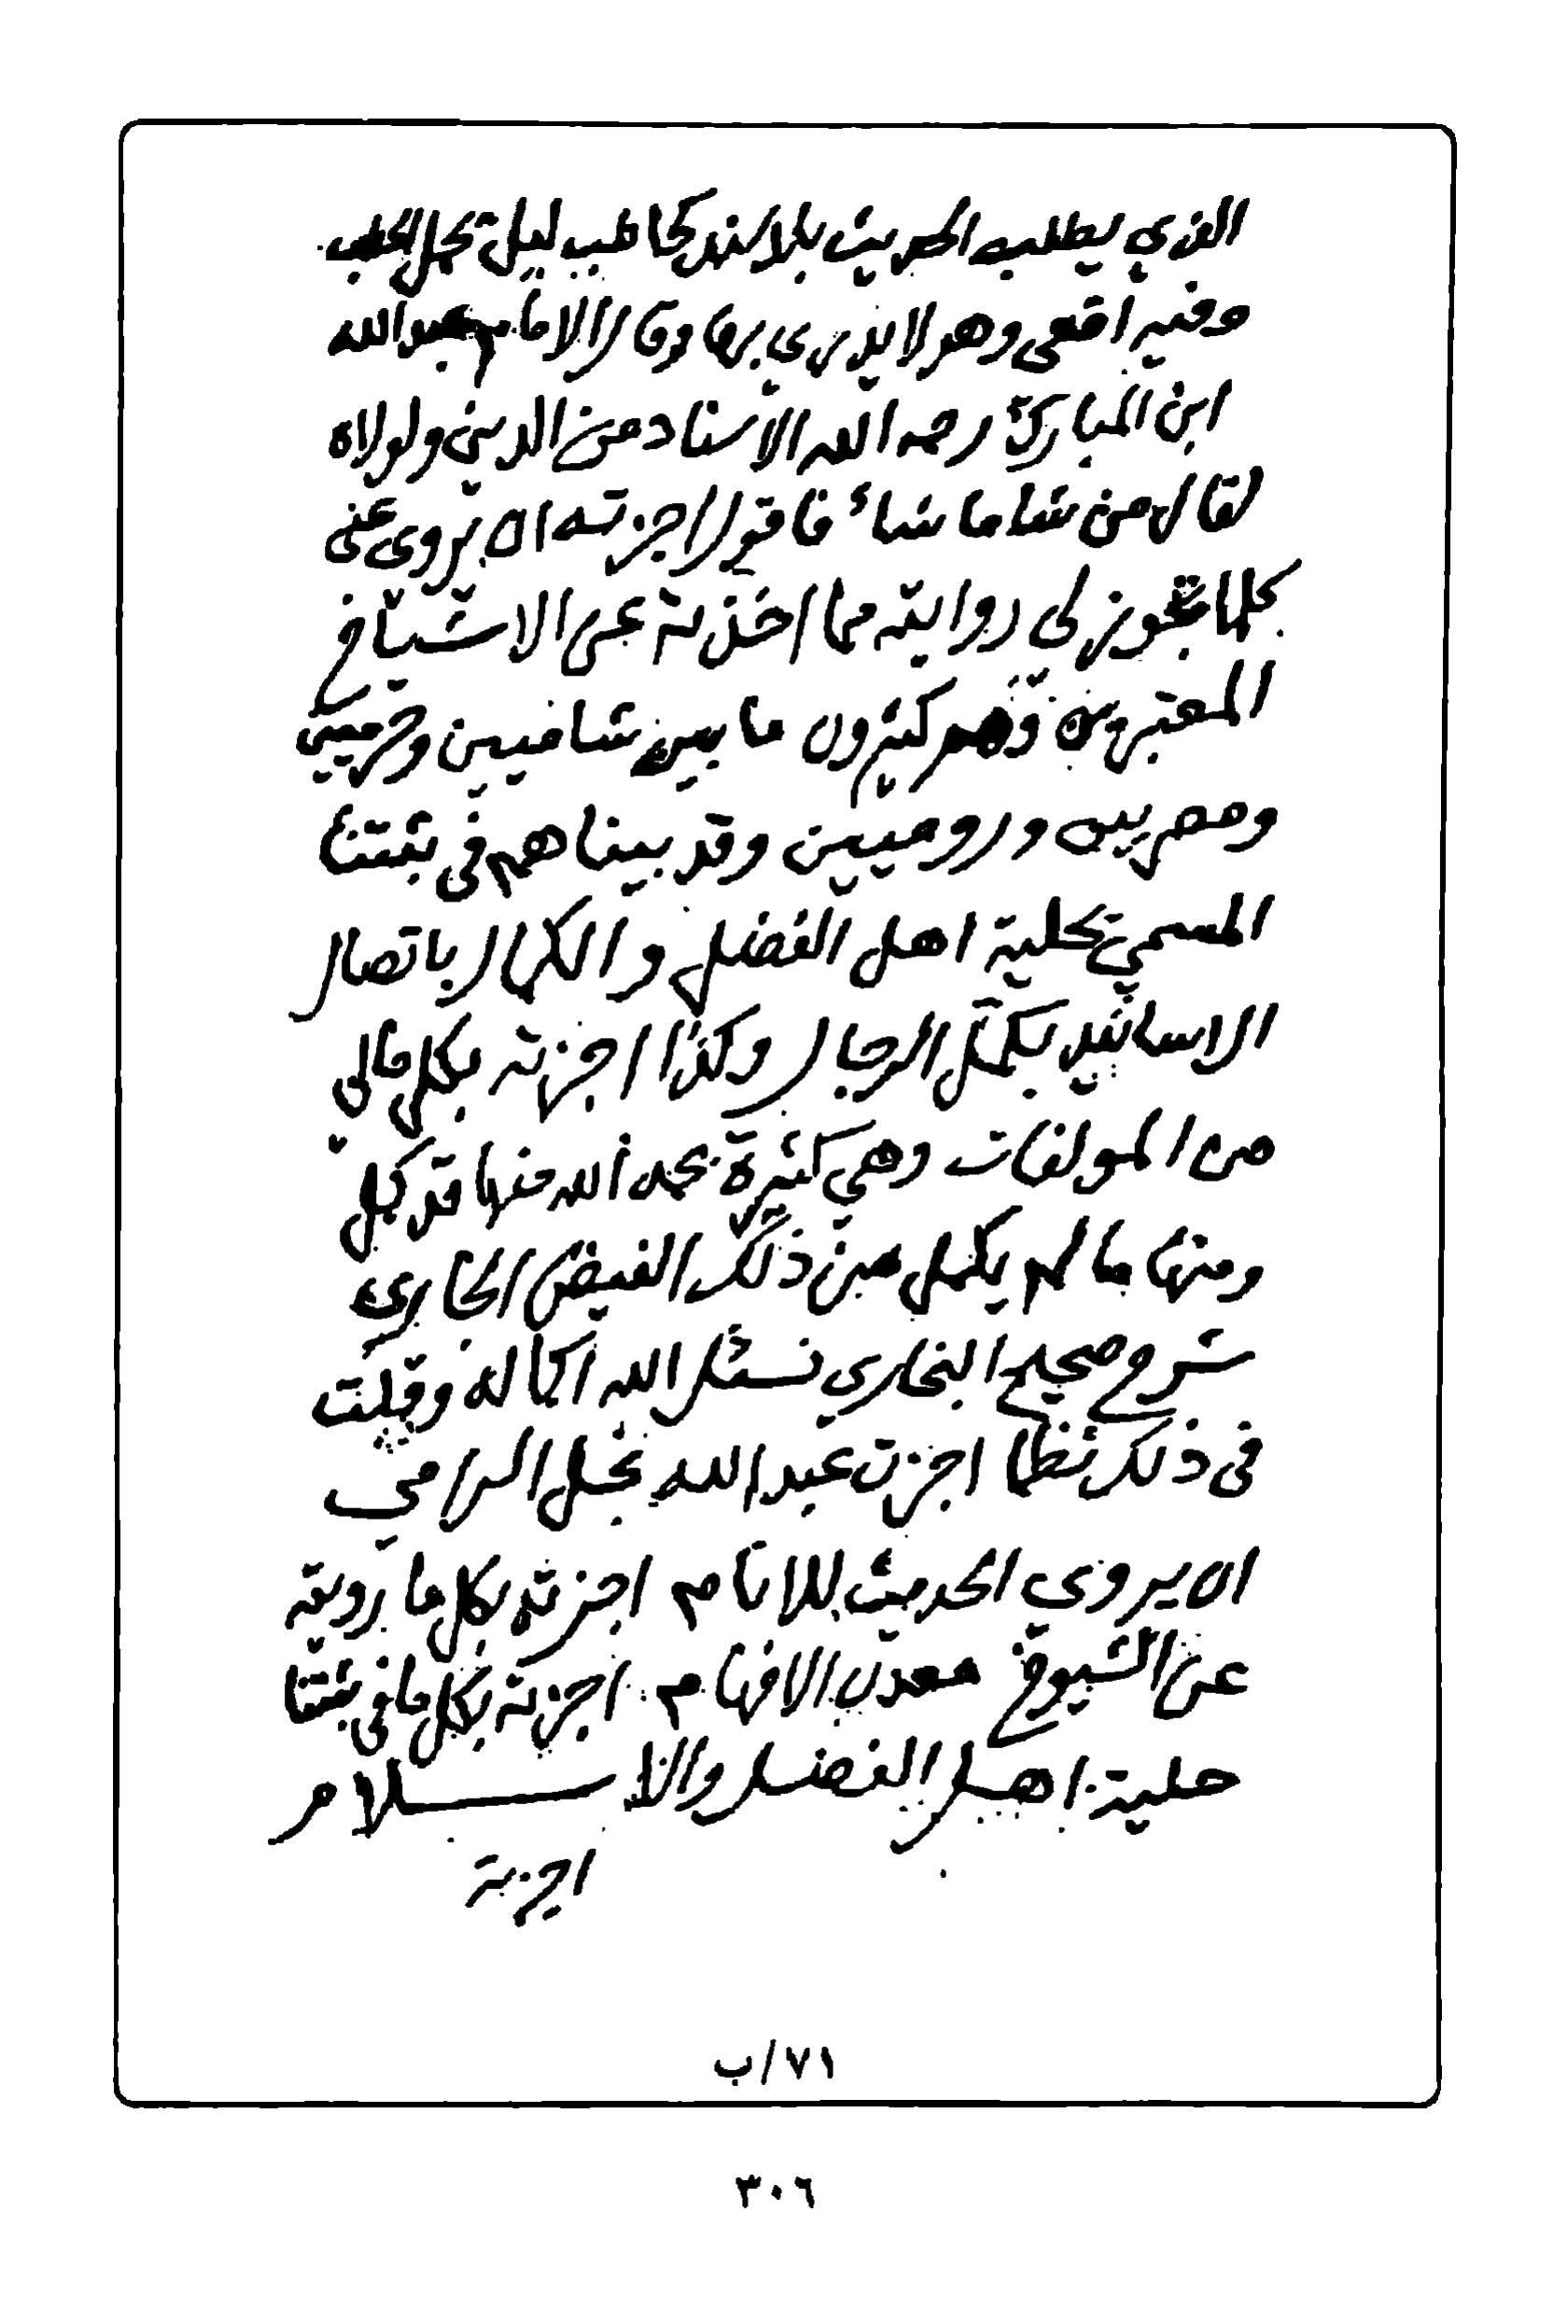 الذي يطلب الحديث بلا سند كحاطب ليل يحمل الحطب
وفيه افعى وهو لا يدري بها وقال الامام عبد الله
ابن المبارك رحمه الله الاسناد من الدين ولولاه
لقال من شا ما شاء فاقول اجزته ان يروي عني
كلما تجوز لي روايته مما اخذته عن الاشياخ
المعتبرين وهم كثيرون ما بين شاميين وحرميين
ومصريين وروميين وقد بيناهم في ثبتنا
المسمى بحلية اهل الفضل والكمال باتصال
الاسانيد بكمل الرجال وكذا اجزته بكل مالي
من المولفات وهي كثيرة بحمد الله منها قد كمل
ومنها ما لم يكمل من ذلك الفيض الجاري
شرح صحيح البخاري نسئل الله اكماله وقلت
في ذلك نظما اجزت عبد الله نجل الرامي
ان يروي الحديث للانام اجزته بكل ما رويته
عن الشيوخ معدن الافهام اجزته بكل ما في ثبتنا
حلية اهل الفضل والاسلام
اجزته
٧١/ب
٣٠٦